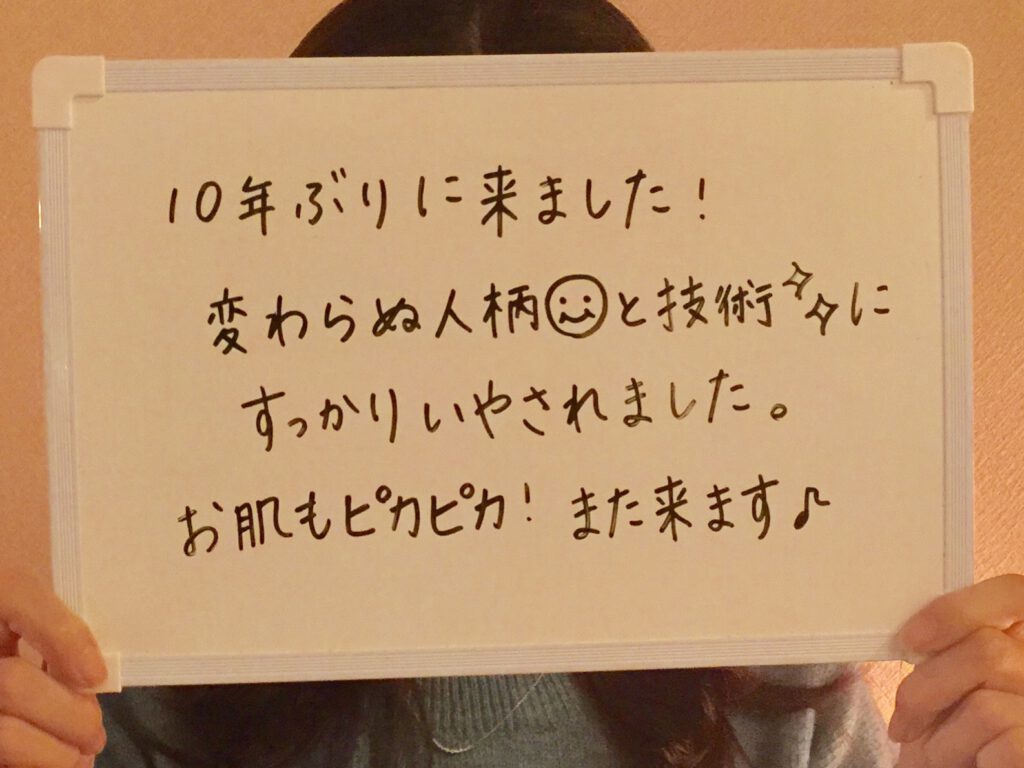 10年ぶりに来ました!
変わらぬ人柄☺と技術✨に
すっかりいやされました。
お肌もピカピカ! また来ます♪